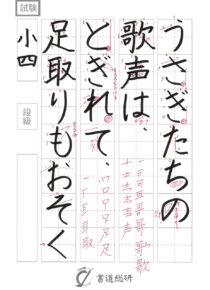 うさぎたちの
歌声は、
とぎれて、
足取りもおそく
試験
小四
段級
書道総研